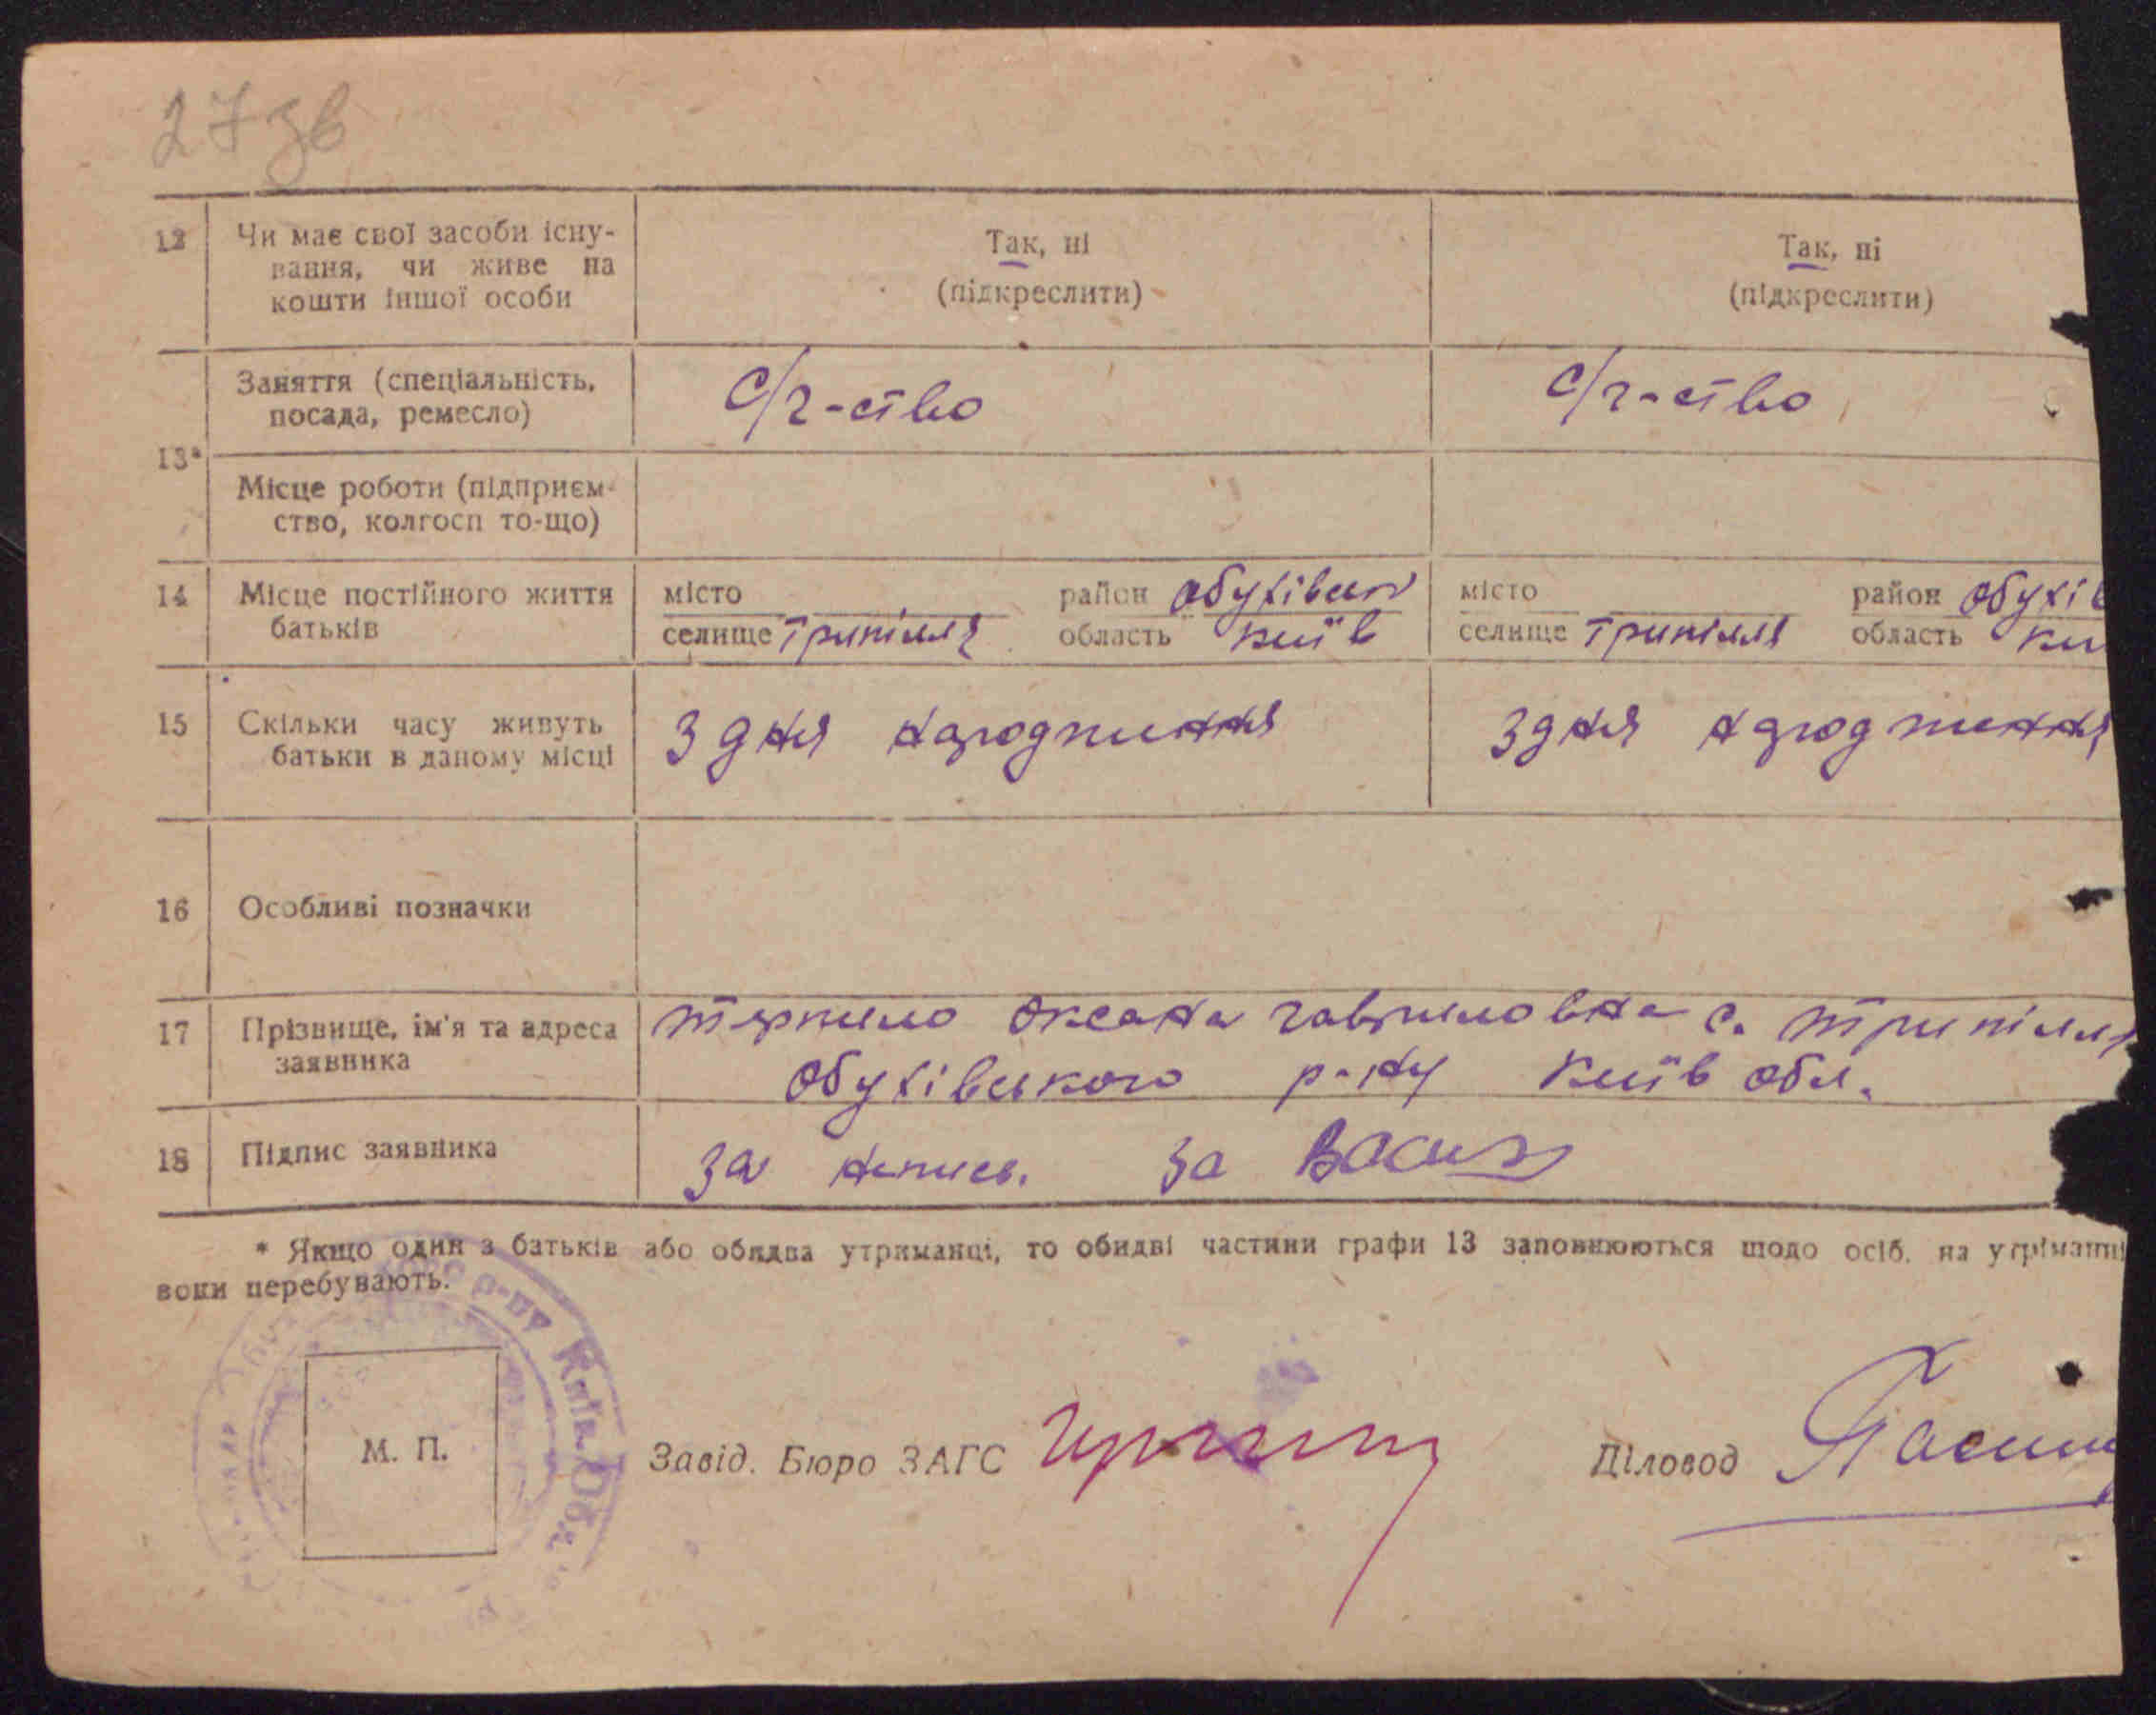 27 зв
12 Чи має свої засоби існу-
вання, чи живе на
кошти іншої особи
Так, ні
(підкреслити)
Так, ні
(підкреслити)
13*
Заняття (спеціальність,
посада, ремесло)
с/г-ство
с/г-ство
Місце роботи (підприєм-
ство, колгосп то-що)
14 Місце постійного життя
батьків
місто
селище Трипілля
район Обухівськ
область Київ
місто
селище Трипілля
район Обухів
область Ки
15 Скільки часу живуть
батьки в даному місці
З дня народження
З дня народження
16 Особливі позначки
17 Прізвище, ім'я та адреса
заявника
Оксана Гавриловна с. Трипілля
Обухівського р-ну Київ обл.
18 Підпис заявника
за за
* Якщо один з батьків або обидва утриманці, то обидві частини графи 13 заповнюються щодо осіб, на утріманні
вони перебувають.
р-ну Київ. Обл.
М. П.
Завід. Бюро ЗАГС
Діловод